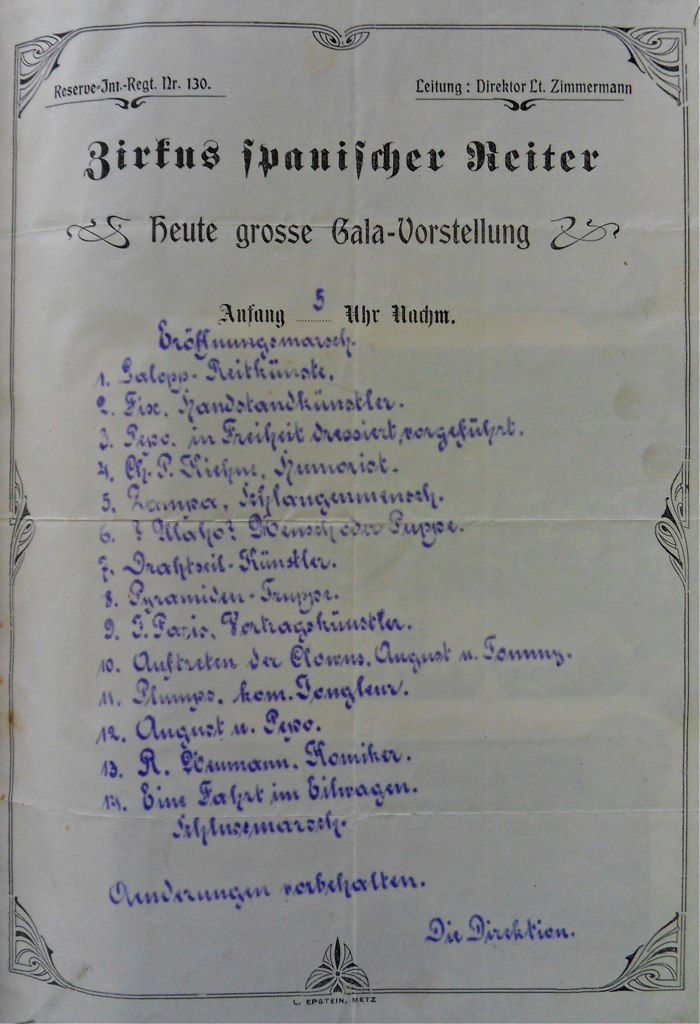 Reserve-Inf.-Regt. Nr. 130.
Leitung: Direktor Lt. Zimmermann
Zirkus spanischer Reiter
Heute grosse Gala-Vorstellung
Anfang 5 Uhr Nachm.
Eröffnungsmarsch.
1. Galopp-Reitkünste.
2. Fix, Handstandkünstler.
3. Pepo, in Freiheit dressiert, vorgeführt.
4. Ch. P. Kiehne, Humorist.
5. Zampa, Schlangenmensch.
6. ? Maho? Mensch oder Puppe.
7. Drahtseil-Künstler.
8. Pyramiden-Truppe.
9. J. Paris, Vortragskünstler.
10. Auftreten der Clowns, August u. Tommy.
11. Plumps, kom. Jongleur.
12. August u. Pepo.
13. R. Neumann, Komiker.
14. Eine Fahrt im Eilwagen.
Schlussmarsch.
Aenderungen vorbehalten.
Die Direktion.
L. EPSTEIN, METZ